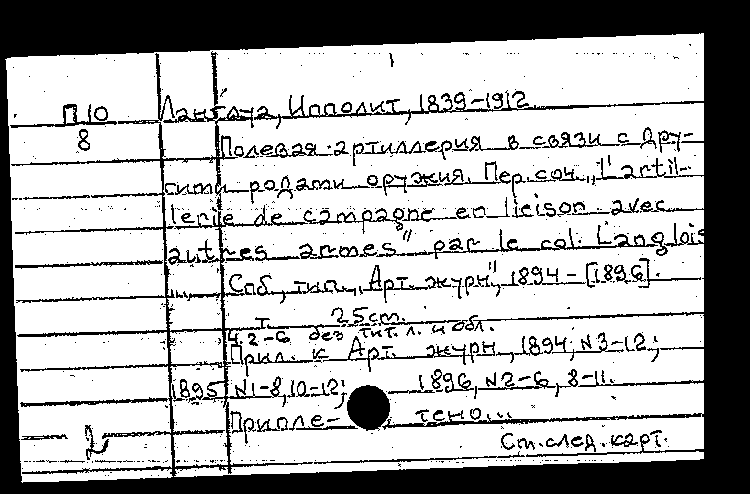 П10 Лангłуа, Ипполит, 1839-1912
8 Полевая артиллерия в связи с дру-
гими родами оружия. Пер. соч. „L'artil-
lerie de campagne en lieison avec
autres armes" par le col. Langlois
Спб., тип. „Арт. журн", 1894 - [1896].
т. 25cm.
ч. 2-6 без тит. л. и обл.
Прил. к Арт. журн, 1894, N3-12;
1895 N1-8, 10-12; 1896, N2-6, 8-11.
Припле- тено...
2 См. след. карт.